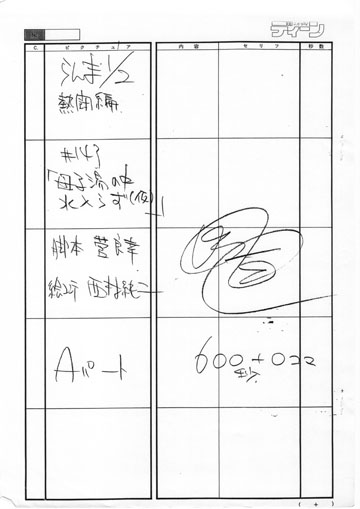 ディーン
C.
ピクチュア
内容
セリフ
秒数
らんま1/2
熱闘編
#143
「母子湯の中
水入らず(仮)」
脚本 菅良幸
絵コンテ 西村純二
Aパート
600+0コマ
( + )